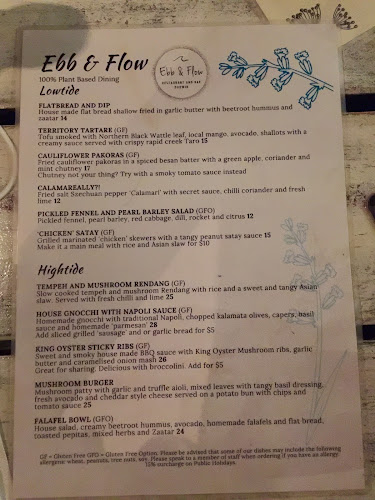 Ebb & Flow
100% Plant Based Dining
Ebb & Flow
RESTAURANT AND BAR
DARWIN
Lowtide
FLATBREAD AND DIP
House made flat bread shallow fried in garlic butter with beetroot hummus and
zaatar 14
TERRITORY TARTARE (GF)
Tofu smoked with Northern Black Wattle leaf, local mango, avocado, shallots with a
creamy sauce served with crispy rapid creek Taro 15
CAULIFLOWER PAKORAS (GF)
Fried cauliflower pakoras in a spiced besan batter with a green apple, coriander and
mint chutney 17
Chutney not your thing? Try with a smoky tomato sauce instead
CALAMAREALLY?!
Fried salt Szechuan pepper 'Calamari' with secret sauce, chilli coriander and fresh
lime 12
PICKLED FENNEL AND PEARL BARLEY SALAD (GFO)
Pickled fennel, pearl barley, red cabbage, dill, rocket and citrus 12
'CHICKEN' SATAY (GF)
Grilled marinated 'chicken' skewers with a tangy peanut satay sauce 15
Make it a main meal with rice and Asian slaw for $10
Hightide
TEMPEH AND MUSHROOM RENDANG (GF)
Slow cooked tempeh and mushroom Rendang with rice and a sweet and tangy Asian
slaw. Served with fresh chilli and lime 25
HOUSE GNOCCHI WITH NAPOLI SAUCE (GF)
Homemade gnocchi with traditional Napoli, chopped kalamata olives, capers, basil
sauce and homemade 'parmesan' 28
Add sliced grilled 'sausage' and or garlic bread for $5
KING OYSTER STICKY RIBS (GF)
Sweet and smoky house made BBQ sauce with King Oyster Mushroom ribs, garlic
butter and caramelised onion mash 26
Great for sharing. Delicious with broccolini. Add for $5
MUSHROOM BURGER
Mushroom patty with garlic and truffle aioli, mixed leaves with tangy basil dressing,
fresh avocado and cheddar style cheese served on a potato bun with chips and
tomato sauce 25
FALAFEL BOWL (GFO)
House salad, creamy beetroot hummus, avocado, homemade falafels and flat bread,
toasted pepitas, mixed herbs and Zaatar 24
GF = Gluten Free GFO = Gluten Free Option. Please be advised that some of our dishes may include the following
allergens: wheat, peanuts, tree nuts, soy. Please speak to a member of staff when ordering if you have an allergy
15% surcharge on Public Holidays